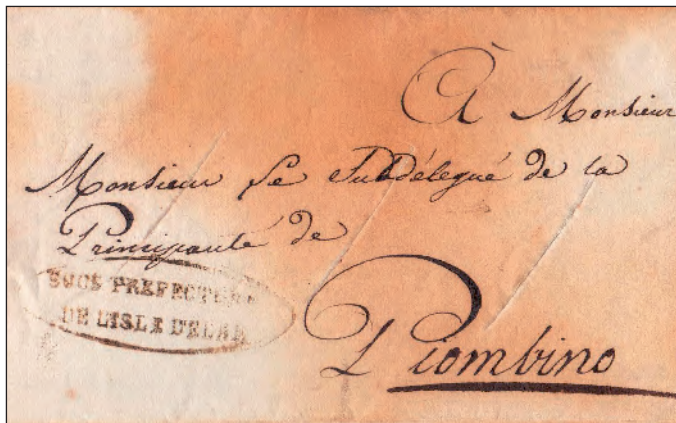 À Monsieur
Monsieur Le Subdélegué de la
Principauté de
SOUS PREFECTURE
DE L'ISLE D'ELBE
Piombino